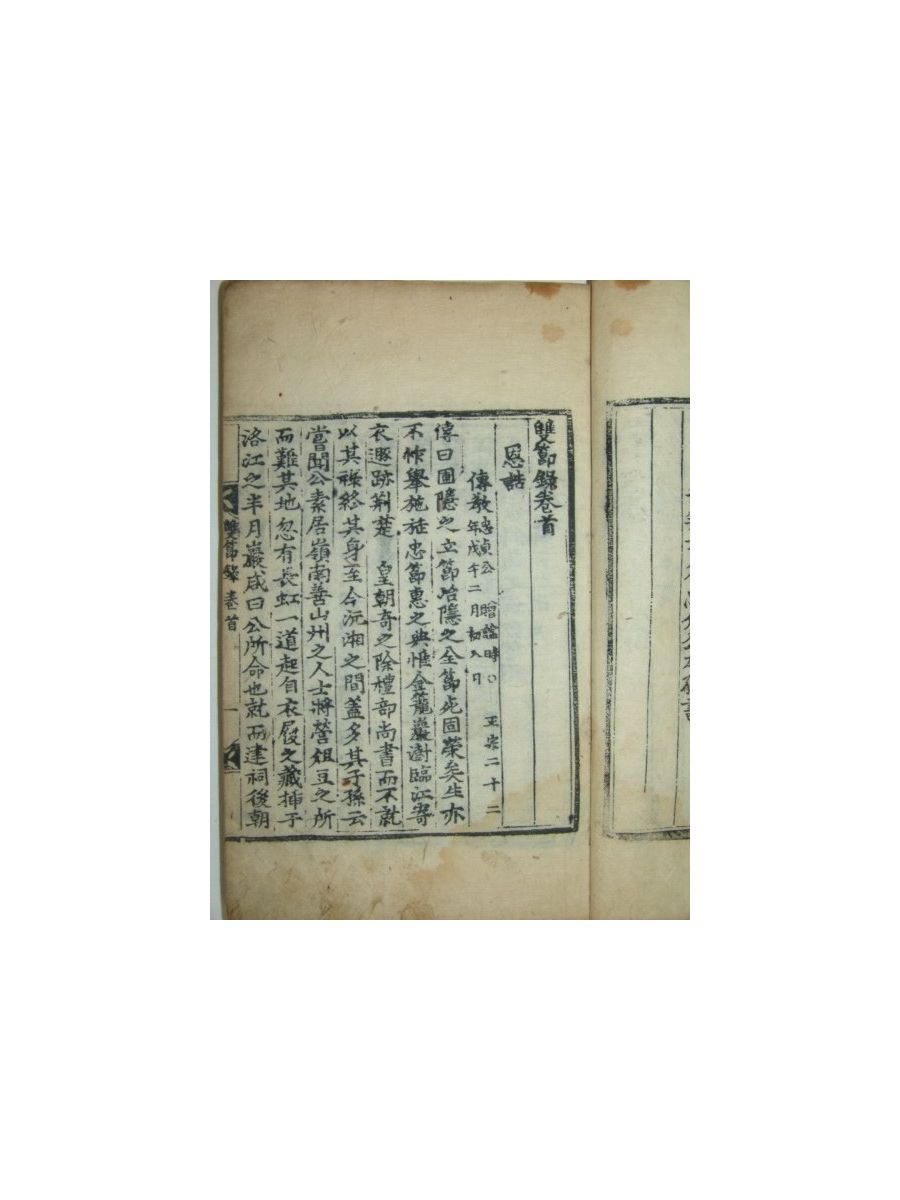 雙節錄卷首
恩誥
傳敎忠貞公贈諡時○正宗二十二年戊午二月初八日
傳曰圃隱之立節冶隱之全節死固榮矣生亦
不怍擧施旌忠節惠之典惟金籠巖澍臨江寄
衣遯跡荊楚 皇朝奇之除禮部尚書而不就
以其祿終其身至今沅湘之間蓋多其子孫云
嘗聞公素居嶺南善山州之人士將營俎豆之所
而難其地忽有長虹一道起自衣履之藏揷于
洛江之半月巖咸曰公所命也就而建祠後朝
雙節錄卷首 一